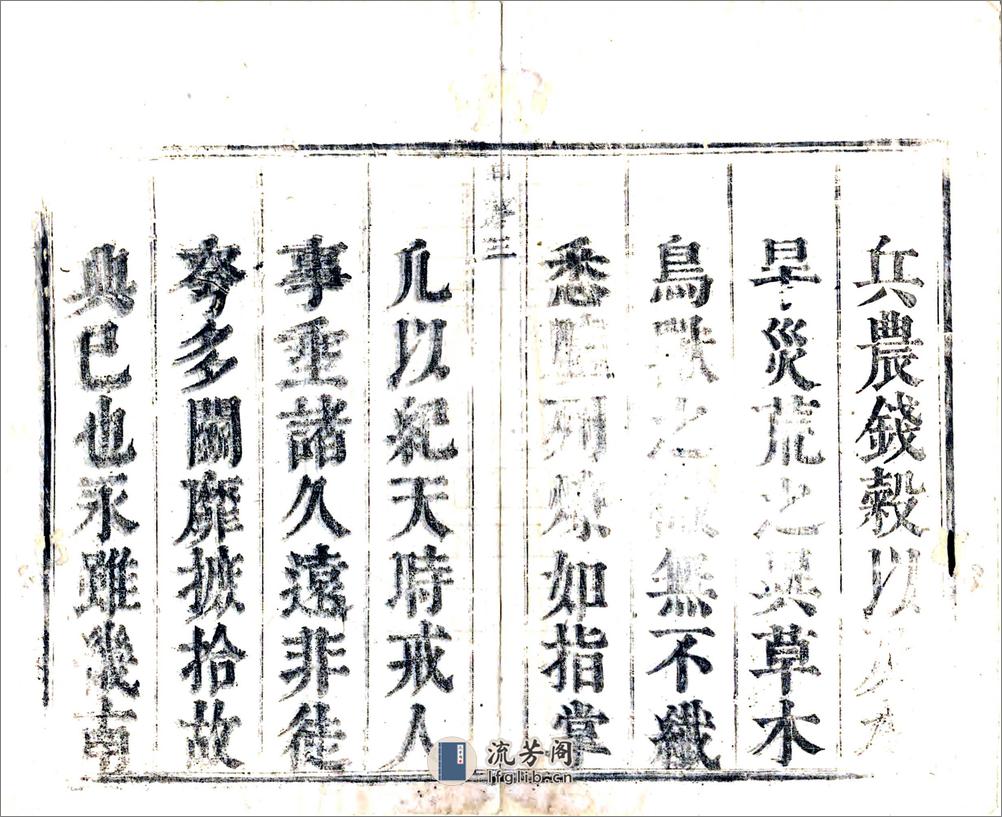 兵農錢穀以
旱災荒之異草木
鳥獸之無不纖
悉臚列燎如指掌
凡以紀天時戒人
事垂諸久遠非徒
夸多鬭靡掇拾故
典已也永雖幾南
流芳阁
lfglib.cn